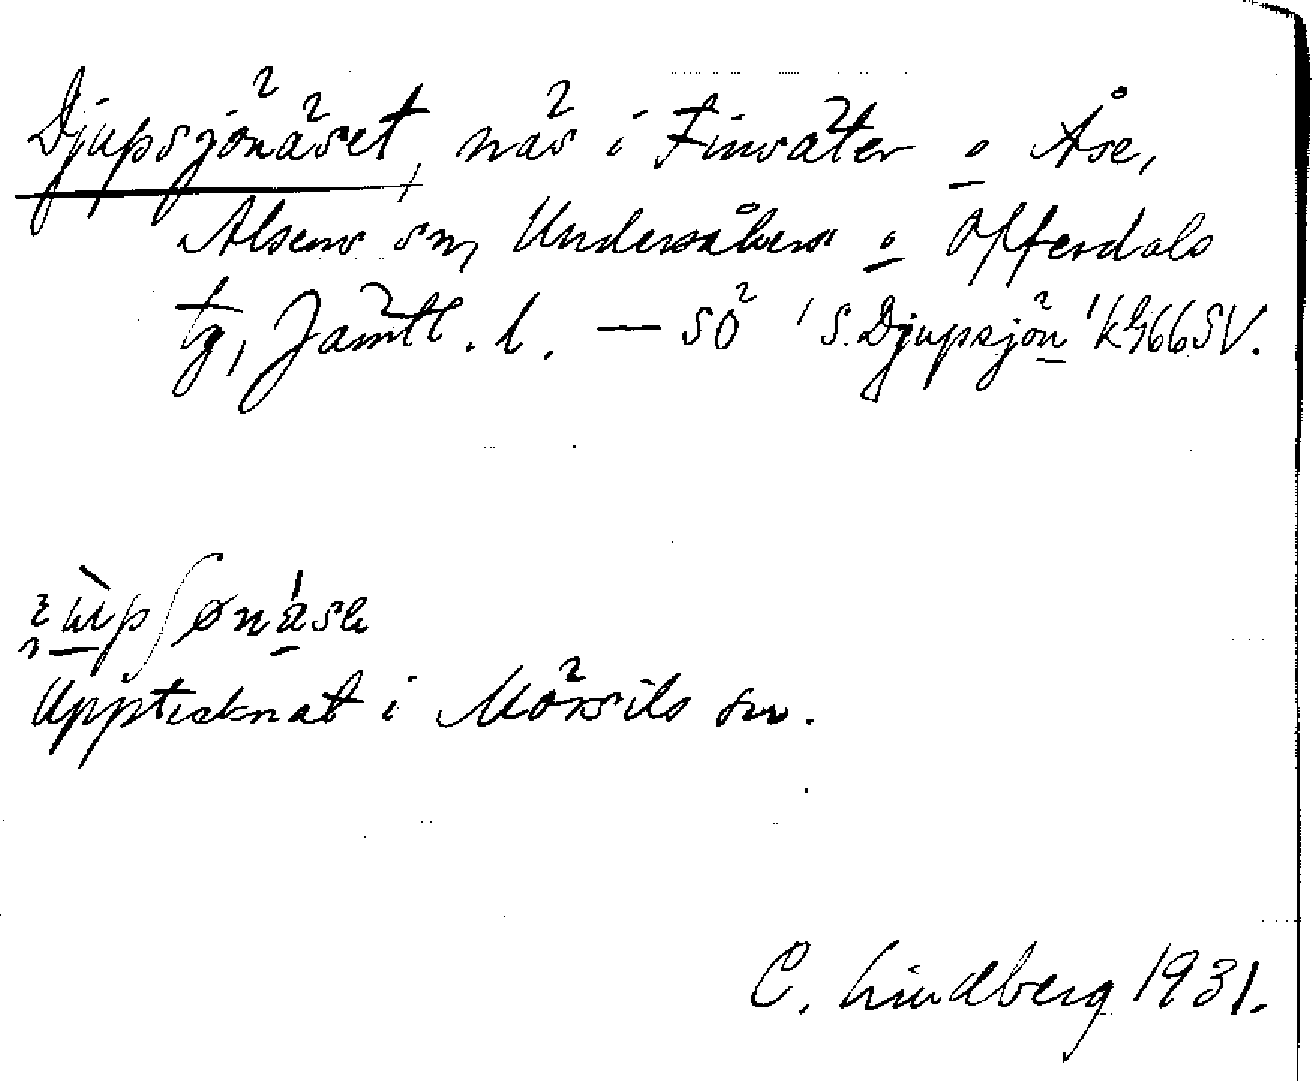 Djupsjönäset, näs i Finsäter o Åse,
Alsens sn, Undersåkers o Offerdals
tg, Jämtl. l. — SÖ 'S. Djupsjön' kG66SV.
ʃønä̀sa
Upptecknat i Mörsils sn.
C. Lindberg 1931.